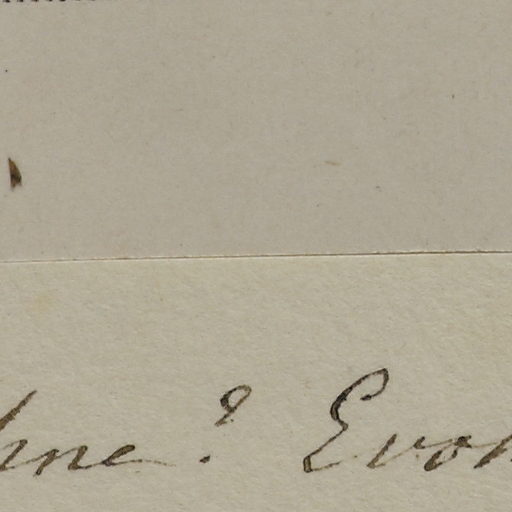 hne? Evon